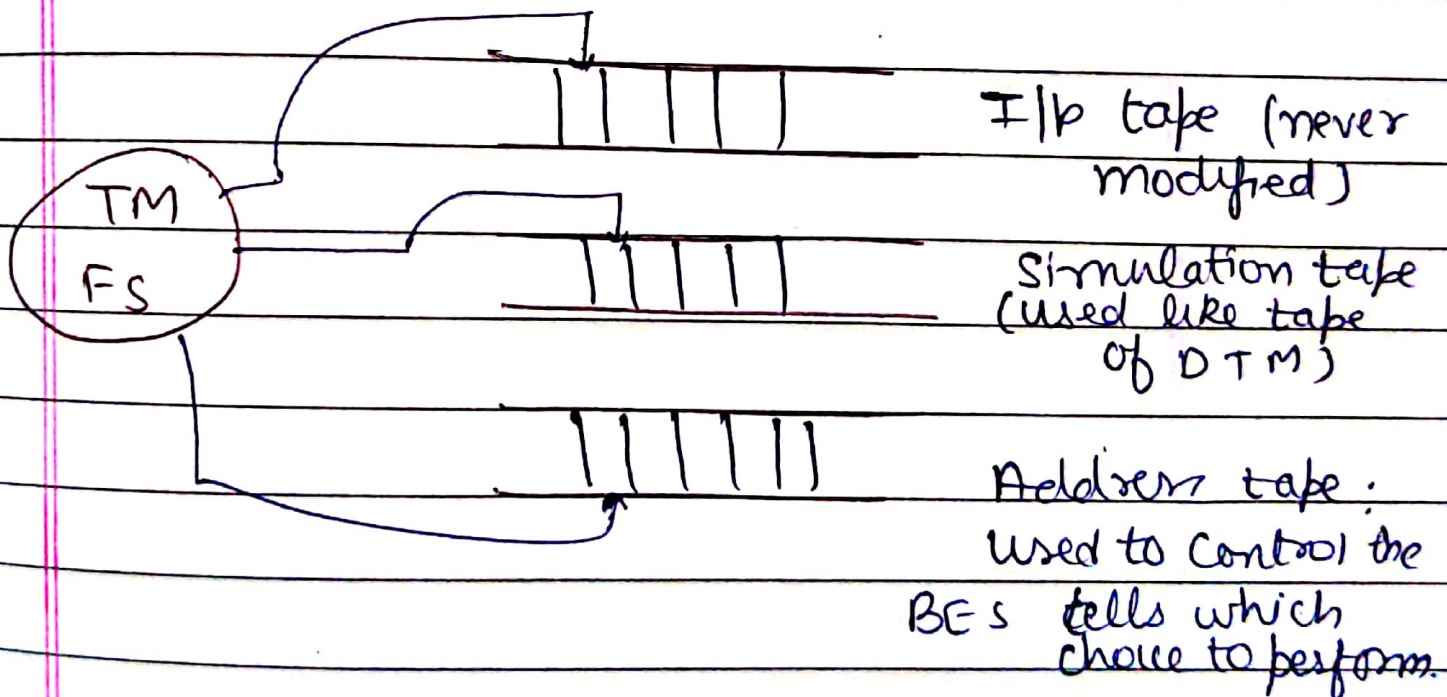 TM
FS
I/p tape (never
modified)
Simulation tape
(used like tape
of DTM)
Address tape.
used to control the
BFS tells which
choice to perform.